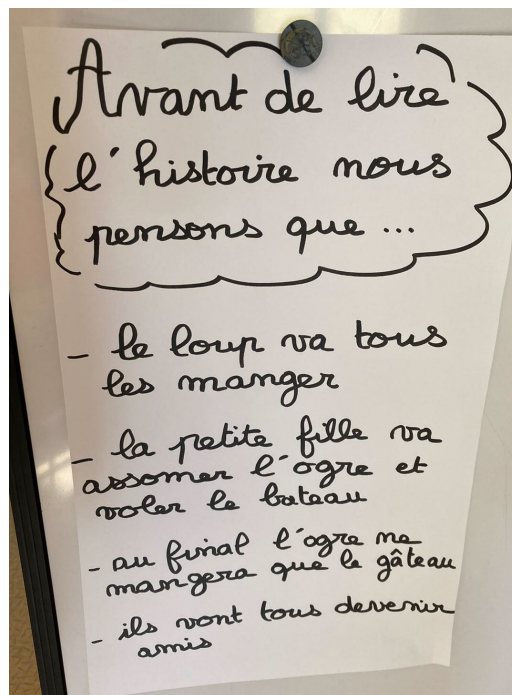 Avant de lire
l'histoire nous
pensons que ...
- le loup va tous
les manger
- la petite fille va
assomer l'ogre et
voler le bateau
- au final l'ogre ne
mangera que le gâteau
- ils vont tous devenir
amis